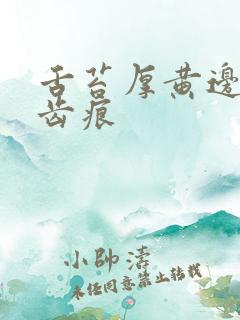 舌苔厚黄邊
齿痕
小帥濤
未经同意禁止转载